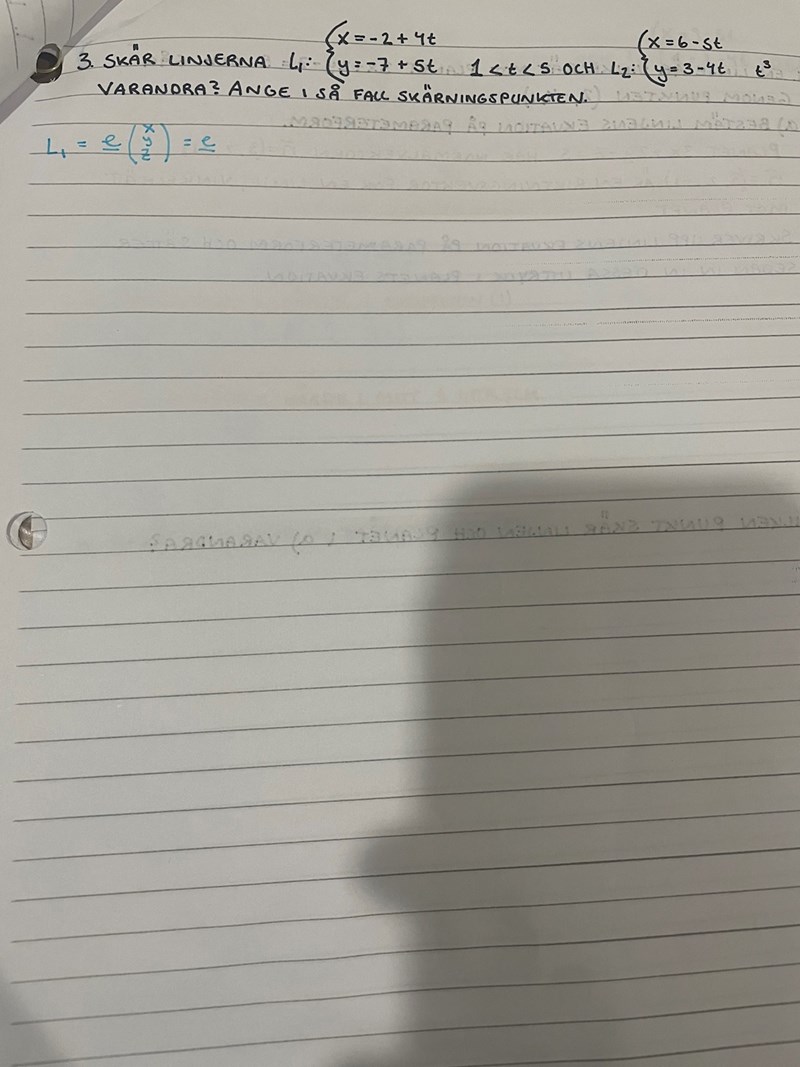 3. SKÄR LINJERNA L₁: {x = -2 + 4t
{y = -7 + 5t 1 < t < 5 OCH L₂: {x = 6 - 5t
{y = 3 - 4t t³
VARANDRA? ANGE I SÅ FALL SKÄRNINGSPUNKTEN.
L₁ = e (x y z) = e